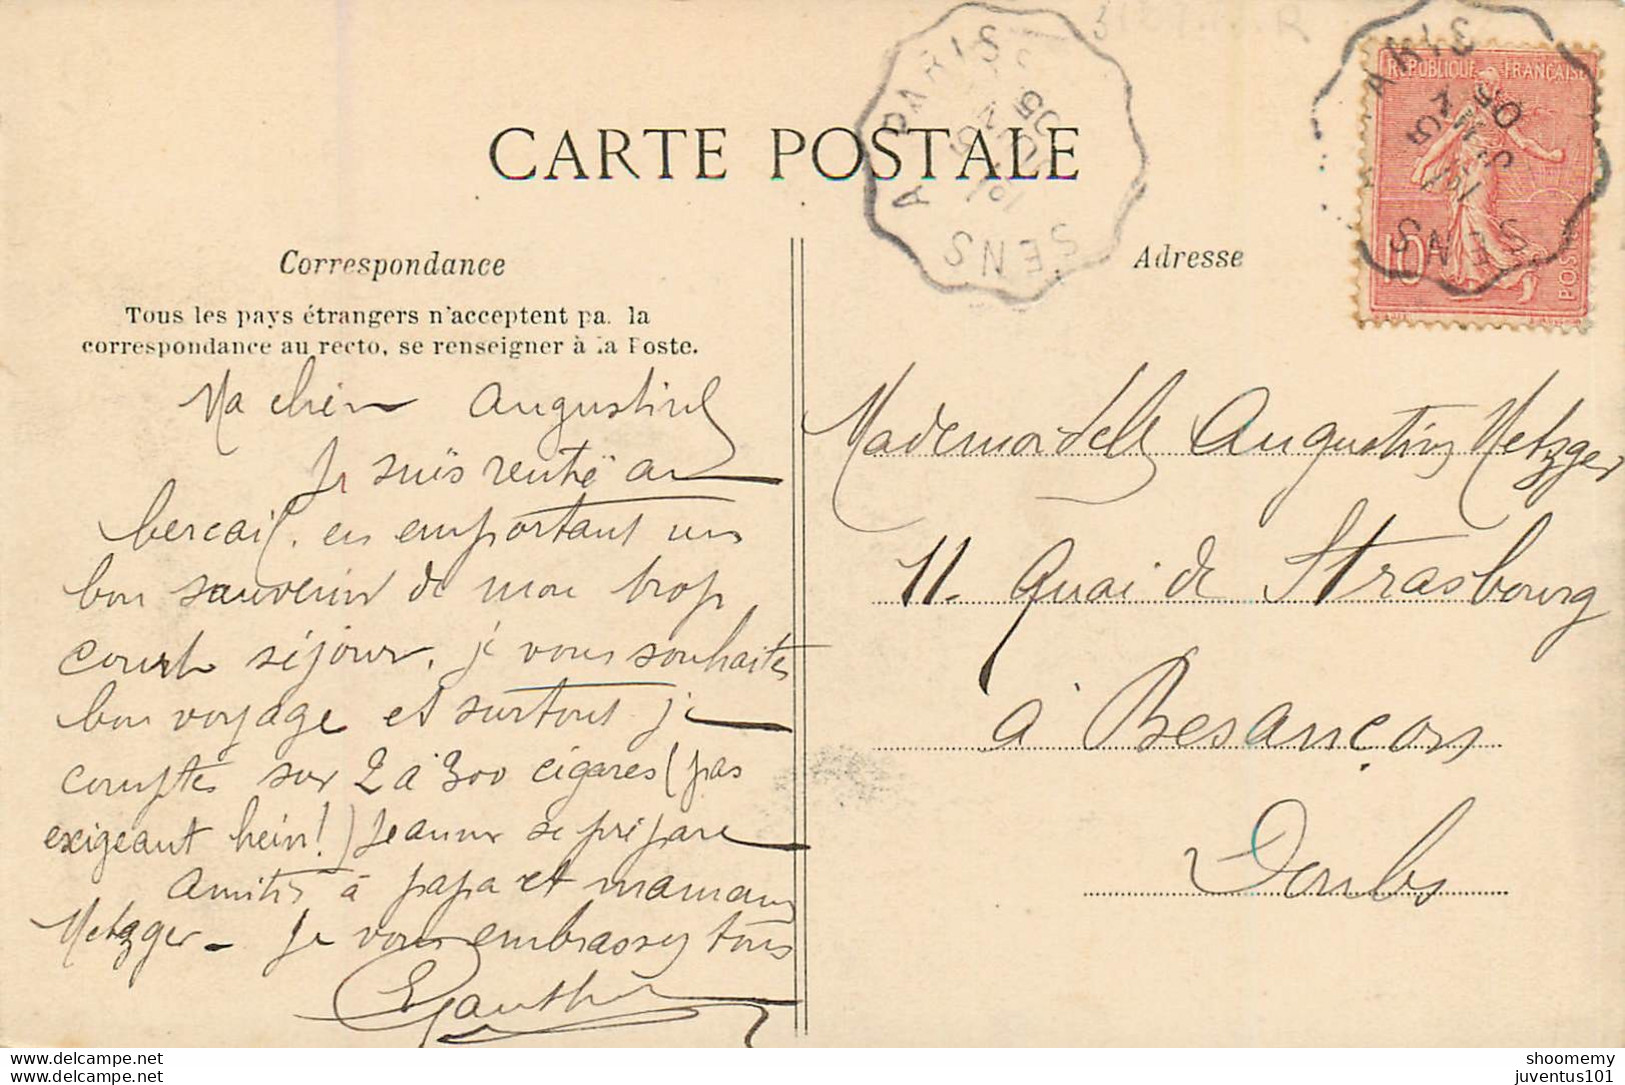 CARTE POSTALE
Correspondance
Tous les pays étrangers n'acceptent pa. la
correspondance au recto, se renseigner à la Poste.
Ma chèr Augustine
Je suis rentré au
bercail. en emportant un
bon souvenir de mon trop
court séjour. je vous souhaites
bon voyage et surtout je
comptes sur 2 à 300 cigares (pas
exigeant hein!) Jeanne se prépare
Amitiés à papa et maman
Metzger - Je vous embrasses tous
Gauthier
Adresse
A PARIS
SENS
REPUBLIQUE FRANÇAISE
10
POSTES
PARIS
SENS
Mademoiselle Augustine Metzger
11. Quai de Strasbourg
à Besançon
Doubs
delcampe.net
delcampe.net
shoomemy
juventus101